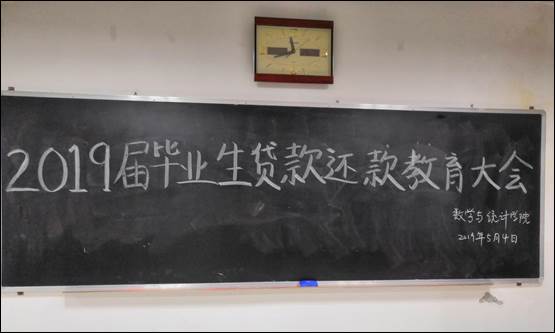 2019届毕业生贷款还款教育大会
数学与统计学院
2019年5月4日